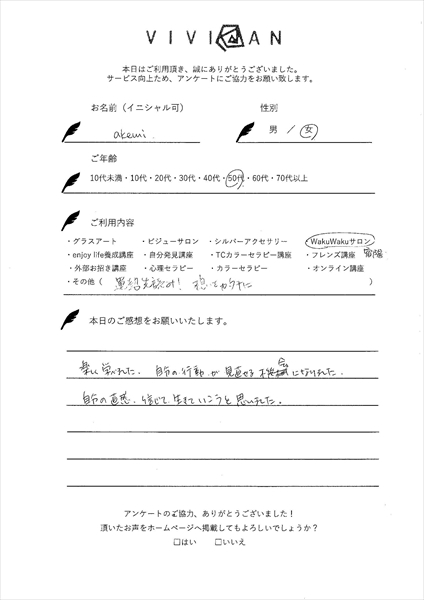 VIVIAN
本日はご利用頂き、誠にありがとうございました。
サービス向上ため、アンケートにご協力をお願い致します。
お名前（イニシャル可） 性別
akemi. 男 / 女
ご年齢
10代未満・10代・20代・30代・40代・50代・60代・70代以上
ご利用内容
・グラスアート ・ビジューサロン ・シルバーアクセサリー WakuWakuサロン
・enjoy life養成講座 ・自分発見講座 ・TCカラーセラピー講座 ・フレンズ講座
・外部お招き講座 ・心理セラピー ・カラーセラピー ・オンライン講座
・その他（ ）
本日のご感想をお願いいたします。
楽しく学べました。自分の行動が見直せる機会になりました。
自分の直感、信じて生きていこうと思いました。
アンケートのご協力、ありがとうございました！
頂いたお声をホームページへ掲載してもよろしいでしょうか？
□はい □いいえ